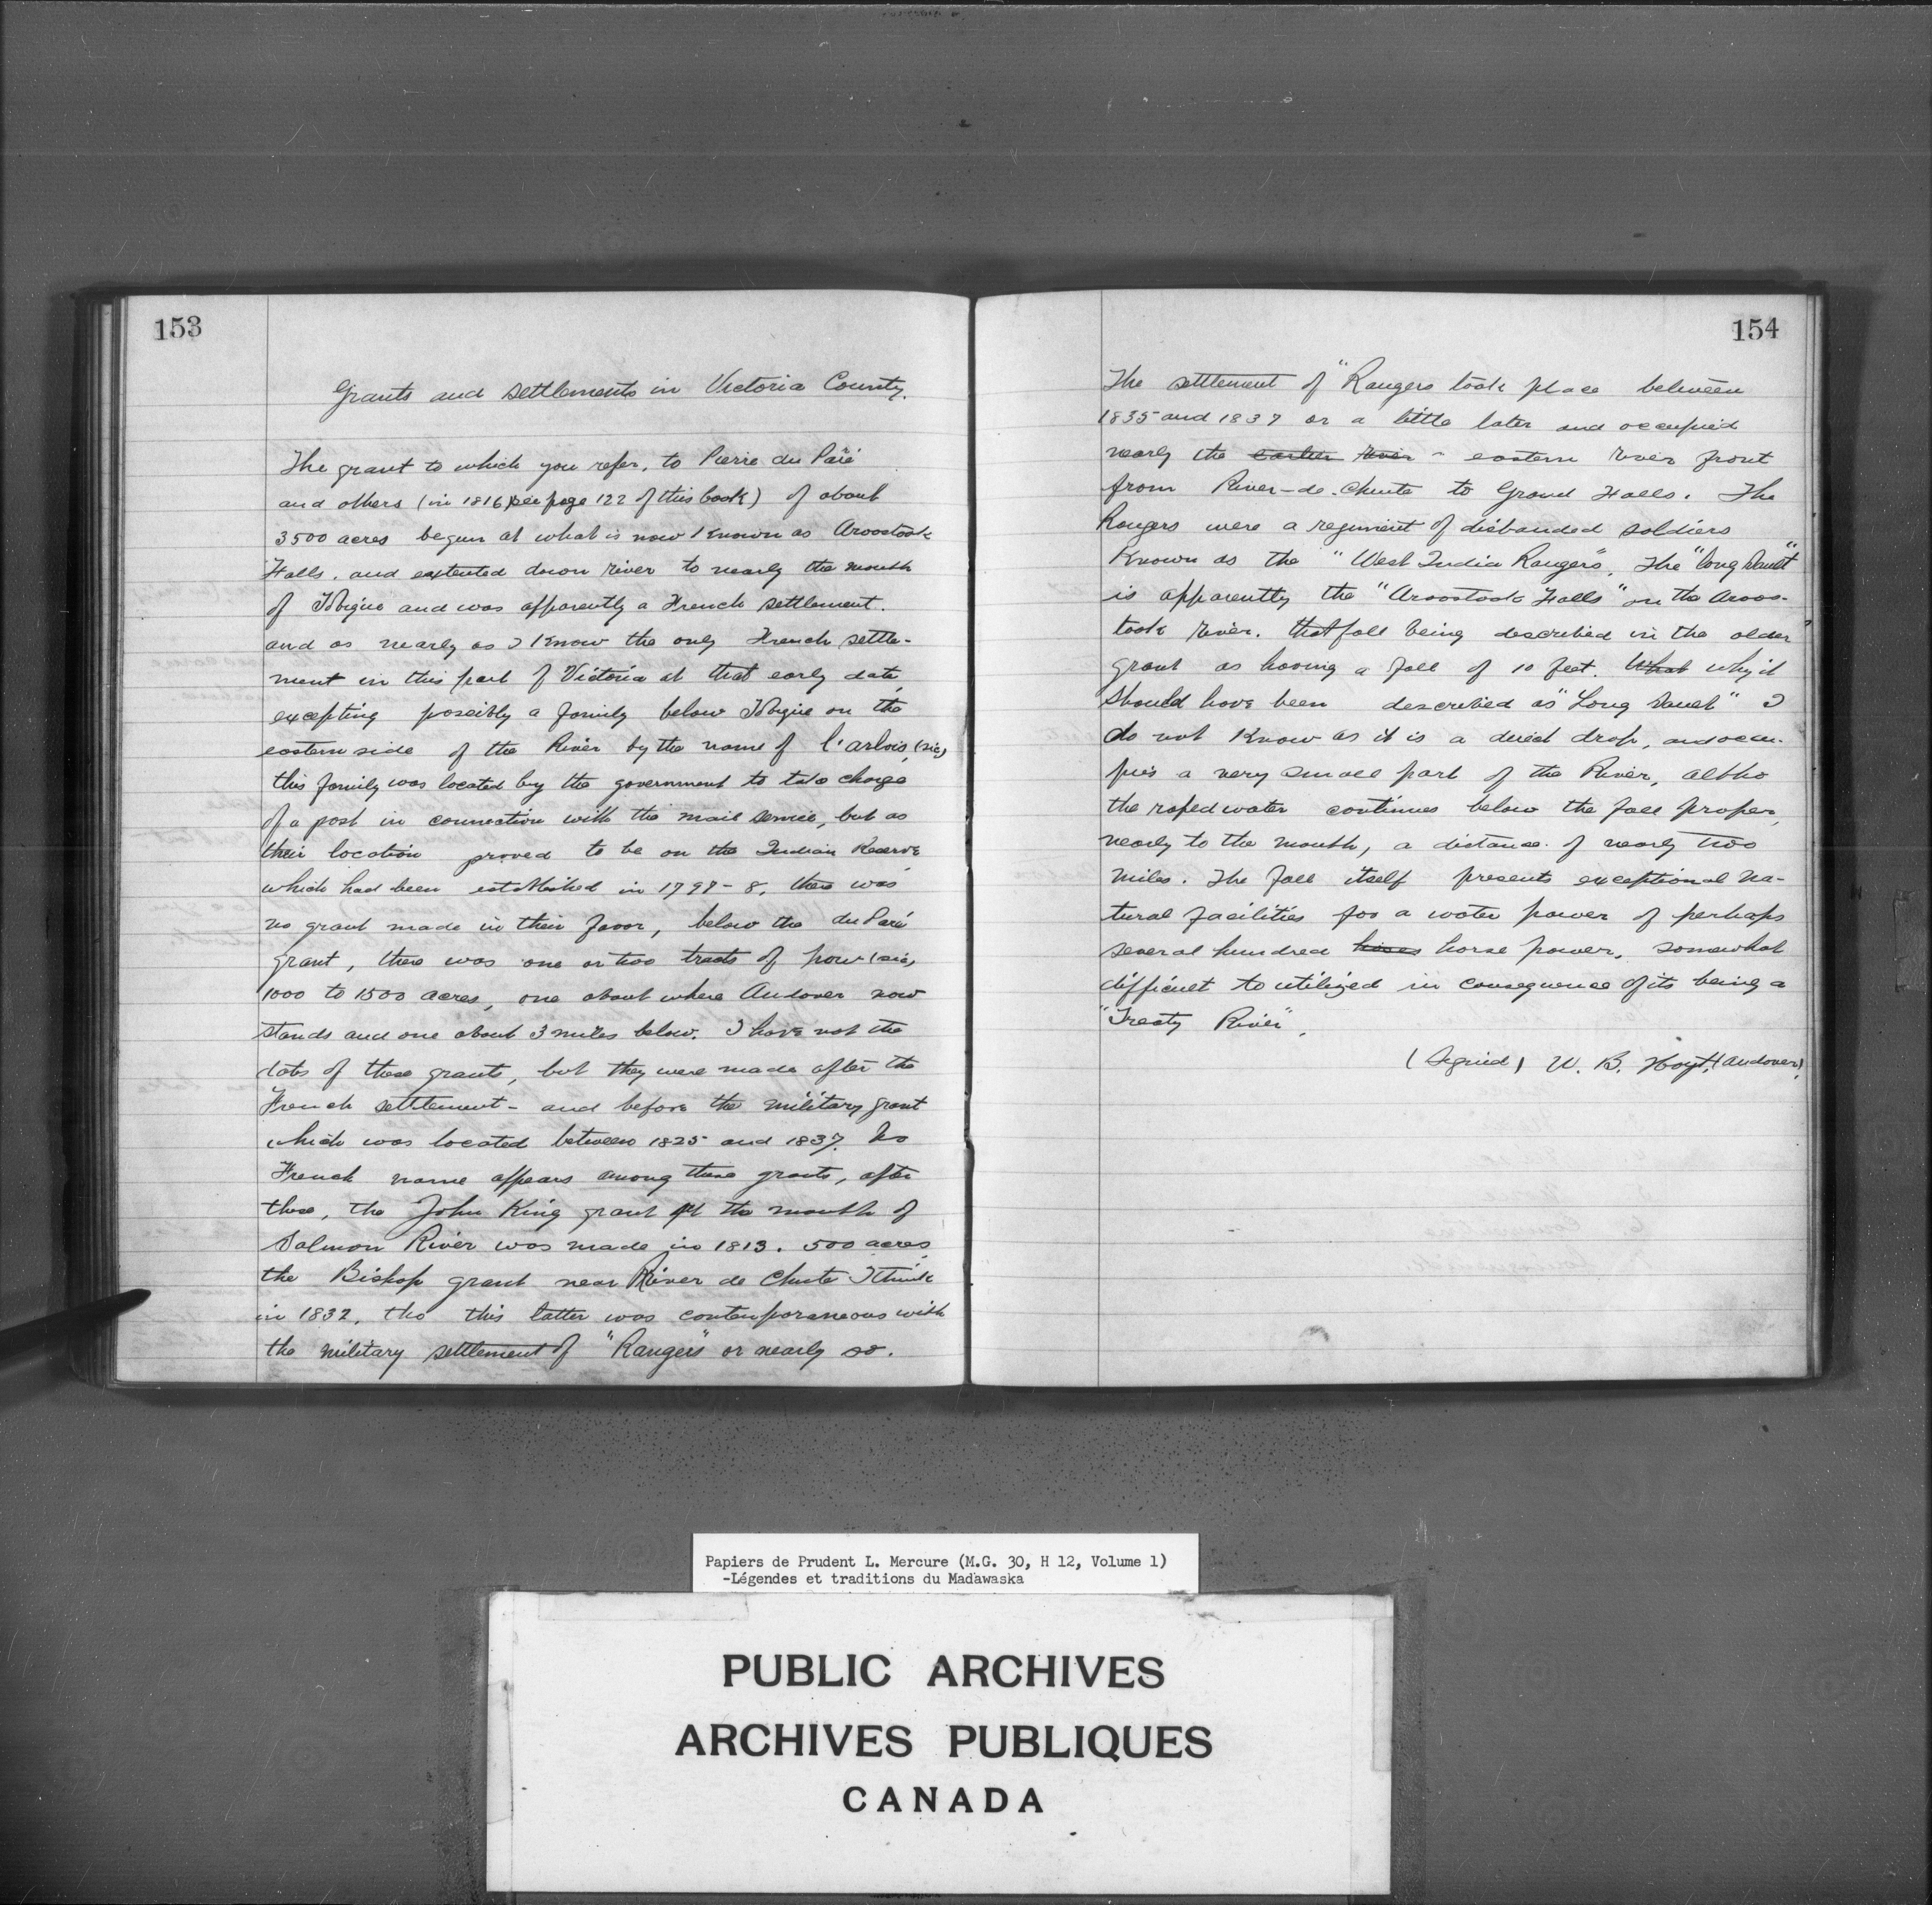 153
Grants and settlements in Victoria County.
The grant to which you refer, to Pierre du Paré
and others (in 1816) see page 122 of this book) of about
3500 acres begun at what is now known as Aroostook
Falls, and extented down river to nearly the mouth
of Tobique and was apparently a French settlement.
and as nearly as I know the only French settle-
ment in this part of Victoria at that early date,
excepting possibly a family below Tobique on the
eastern side of the River by the name of l'arlois, (sic)
this family was located by the government to take charge
of a post in connection with the mail service, but as
their location proved to be on the Indian Reserve
which had been established in 1797-8, there was
no grant made in their favor, below the du Paré
grant, there was one or two tracts of pow (sic)
1000 to 1500 acres, one about where Andover now
stands and one about 3 miles below. I have not the
dats of these grants, but they were made after the
French settlement - and before the military grant
which was located between 1825 and 1837. No
French name appears among these grants, after
these, the John King grant at the mouth of
Salmon River was made in 1813. 500 acres
the Bishop grant near River de Chute I think
in 1832, tho this latter was contemporaneous with
the military settlement of "Rangers" or nearly so.
154
The settlement of "Rangers took place between
1835 and 1837 or a little later and occupied
nearly the earlier river - eastern river front
from River-de-Chute to Grand Falls. The
Rangers were a regiment of disbanded soldiers
known as the "West India Rangers". The "long Sault"
is apparently the "Aroostook Falls" on the Aroos-
took River. that fall being described in the older
grant as having a fall of 10 feet. What why it
should have been described as "Long Sault" I
do not know as it is a direct drop, and occu-
pies a very small part of the River, altho
the raped water continues below the fall proper,
nearly to the mouth, a distance of nearly two
miles. The fall itself presents exceptional na-
tural facilities for a water power of perhaps
several hundred horse power, somewhat
difficult to utilized in consequence of its being a
"Treaty River".
(Signed) W. B. Hoyt, (Andover),
Papiers de Prudent L. Mercure (M.G. 30, H 12, Volume 1)
-Légendes et traditions du Madawaska
PUBLIC ARCHIVES
ARCHIVES PUBLIQUES
CANADA